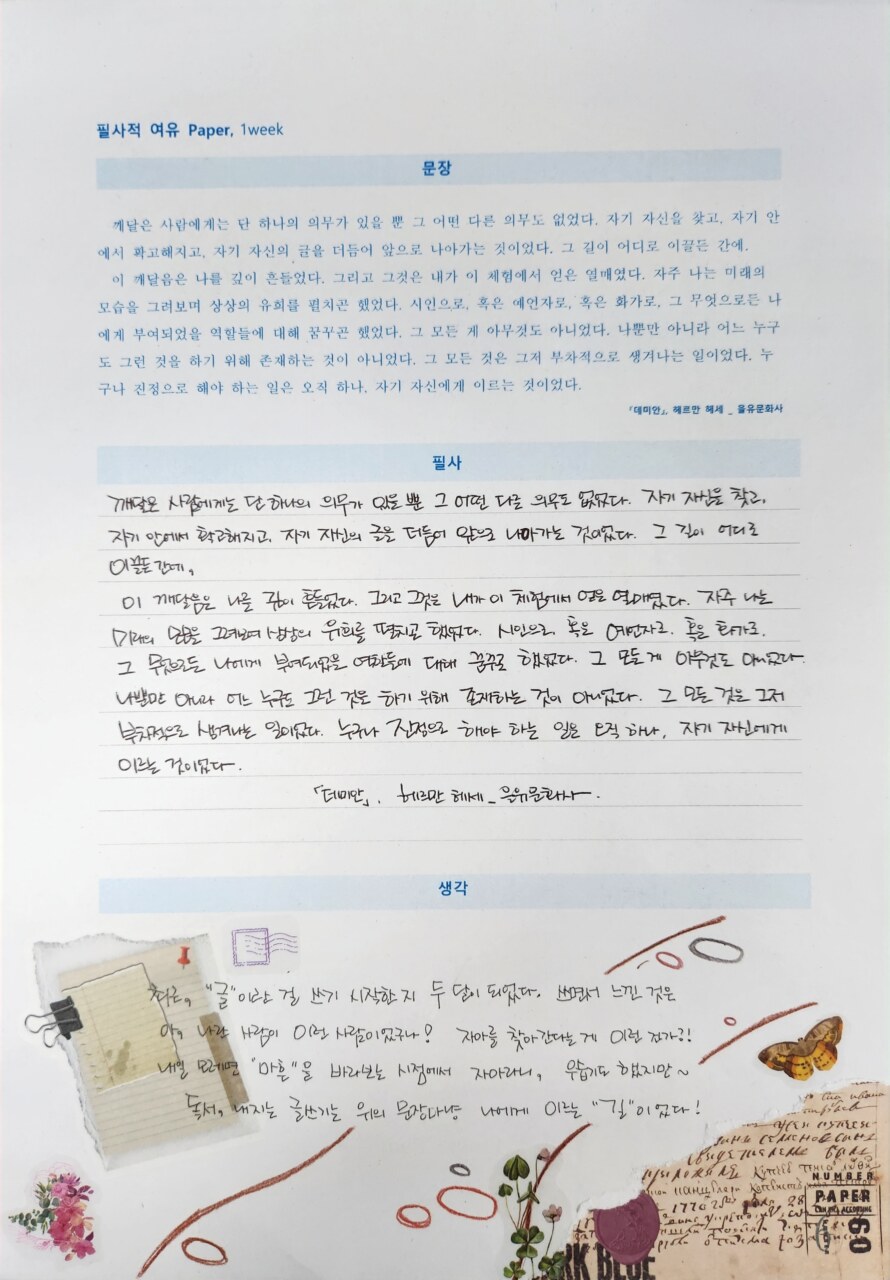 필사적 여유 Paper, 1week
문장
깨달은 사람에게는 단 하나의 의무가 있을 뿐 그 어떤 다른 의무도 없었다. 자기 자신을 찾고, 자기 안
에서 확고해지고, 자기 자신의 글을 더듬어 앞으로 나아가는 것이었다. 그 길이 어디로 이끌든 간에.
이 깨달음은 나를 깊이 흔들었다. 그리고 그것은 내가 이 체험에서 얻은 열매였다. 자주 나는 미래의
모습을 그려보며 상상의 유희를 펼치곤 했었다. 시인으로, 혹은 예언자로, 혹은 화가로, 그 무엇으로든 나
에게 부여되었을 역할들에 대해 꿈꾸곤 했었다. 그 모든 게 아무것도 아니었다. 나뿐만 아니라 어느 누구
도 그런 것을 하기 위해 존재하는 것이 아니었다. 그 모든 것은 그저 부차적으로 생겨나는 일이었다. 누
구나 진정으로 해야 하는 일은 오직 하나, 자기 자신에게 이르는 것이었다.
『데미안』, 헤르만 헤세 _ 을유문화사
필사
깨달은 사람에게는 단 하나의 의무가 있을 뿐 그 어떤 다른 의무도 없었다. 자기 자신을 찾고,
자기 안에서 확고해지고, 자기 자신의 글을 더듬어 앞으로 나아가는 것이었다. 그 길이 어디로
이끌든 간에,
이 깨달음은 나를 깊이 흔들었다. 그리고 그것은 내가 이 체험에서 얻은 열매였다. 자주 나는
미래의 모습을 그려보며 상상의 유희를 펼치곤 했었다. 시인으로, 혹은 예언자로, 혹은 화가로,
그 무엇으로든 나에게 부여되었을 역할들에 대해 꿈꾸곤 했었다. 그 모든 게 아무것도 아니었다.
나뿐만 아니라 어느 누구도 그런 것을 하기 위해 존재하는 것이 아니었다. 그 모든 것은 그저
부차적으로 생겨나는 일이었다. 누구나 진정으로 해야 하는 일은 오직 하나, 자기 자신에게
이르는 것이었다.
「데미안」, 헤르만 헤세_을유문화사.
생각
최근, "글"이란 걸 쓰기 시작한지 두 달이 되었다. 쓰면서 느낀 것은
아, 나란 사람이 이런 사람이었구나? 자아를 찾아간다는게 이런 건가?!
내일 모레면 "마흔"을 바라보는 시점에서 자아라니, 우습기도 했지만~
독서, 내지는 글쓰기는 위의 문장마냥 나에게 이르는 "길"이었다!
NUMBER
PAPER
60
RK BLUE